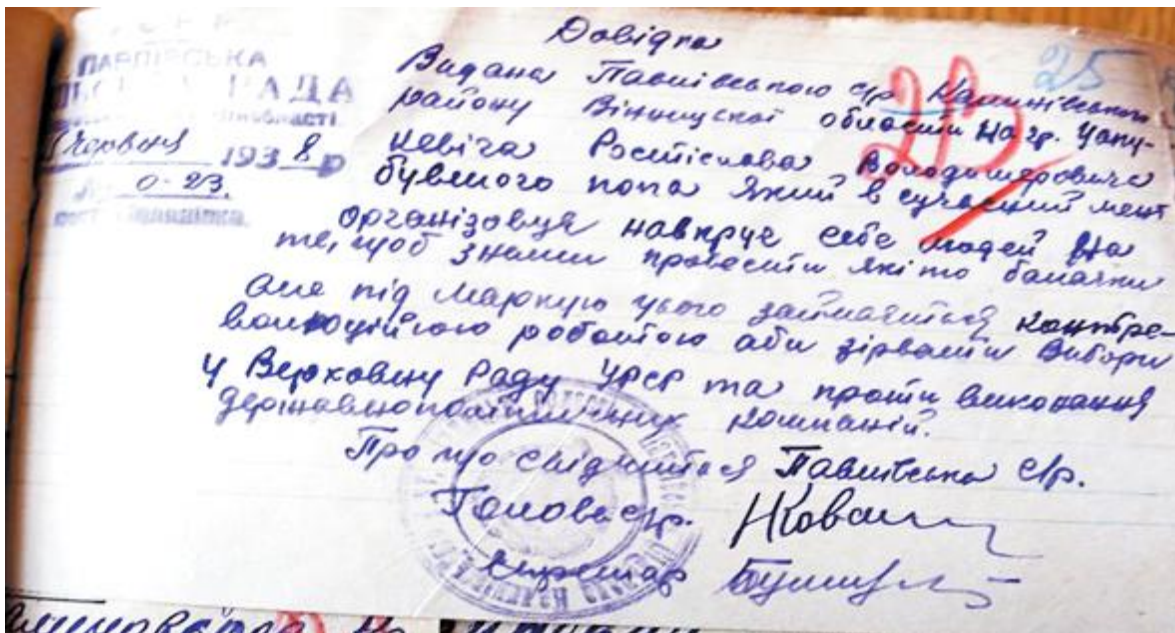 Довідка
25
23
РАДА
Видана Павлівською с/р. Калинівського
Червня 1938 р
району Вінницької області на гр.
0-23.
Ростіслава Володимеровича
бувшого попа який в сучасний мент
організовує навкруг себе людей на
те, щоб з ними провести які то балачки
але під маркую цього займається контре-
волюційною роботою аби зірвати вибори
у Верховну Раду УРСР та проти виконання
державнополітичних компаній.
Про що свідчиться Павлівська с/р.
Голова с/р.
Секретар